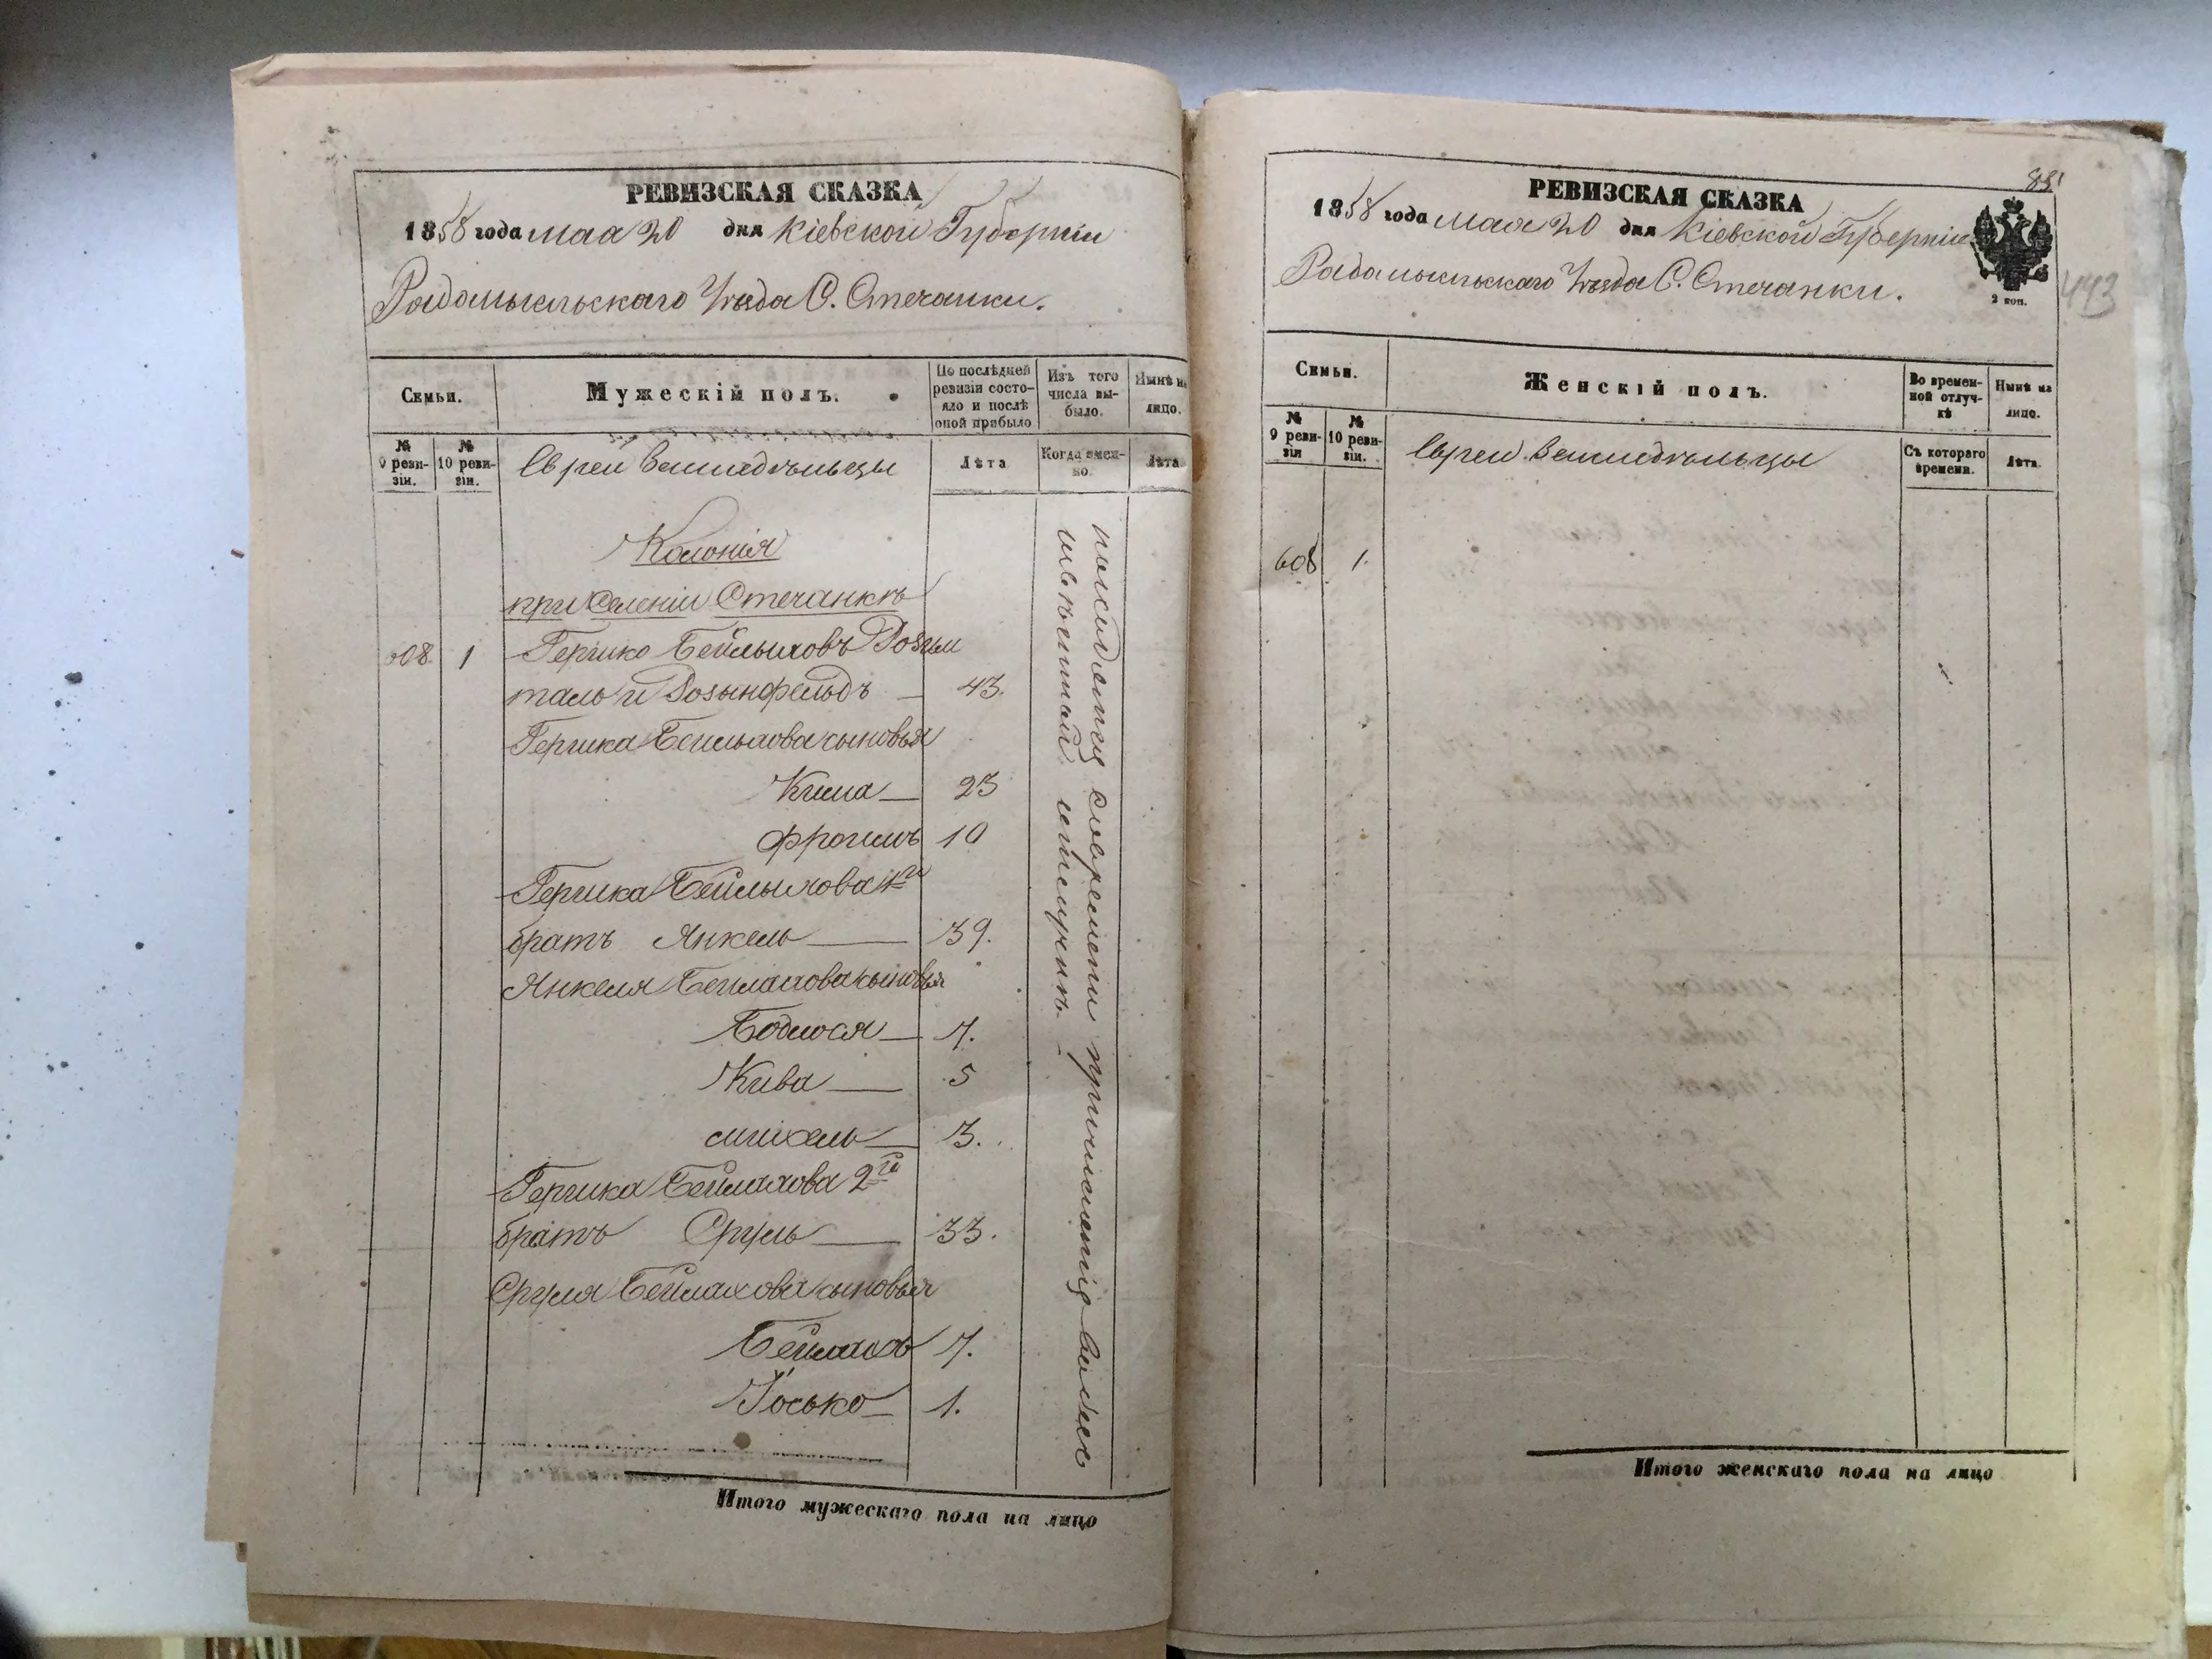 РЕВИЗСКАЯ СКАЗКА
1858 года мая 20 дня Кіевской Губерніи
Радомысльскаго Уѣзда С. Стечанки.
Семьи.
Мужескій полъ.
По послѣдней ревизіи состояло и послѣ оной прибыло
Изъ того числа выбыло.
Нынѣ на лицо.
№ 9 ревизіи.
№ 10 ревизіи.
Евреи Земледѣльцы
Лѣта
Когда именно.
Лѣта
Колонія
при Селеніи Стечанкѣ
608 1 Гершко Беймаховъ Розен
таль и Розынфельдъ 43.
Гершка Беймахова сыновья
23
Фроимъ 10
Гершка Беймахова 1й
братъ Янкель 39.
Янкеля Беймахова сыновья
7.
Кива 5
3.
Гершка Беймахова 2й
братъ Сруль 33.
Сруля Беймахова сыновья
Беймахъ 7.
Іосько 1.
Итого мужескаго пола на лицо
88
РЕВИЗСКАЯ СКАЗКА
1858 года мая 20 дня Кіевской Губерніи
Радомысльскаго Уѣзда С. Стечанки.
2 коп.
443
Семьи.
Женскій полъ.
Во временной отлучкѣ
Нынѣ на лицо.
№ 9 ревизіи
№ 10 ревизіи.
Евреи Земледѣльцы
Съ котораго времени.
Лѣта.
608 1.
Итого женскаго пола на лицо